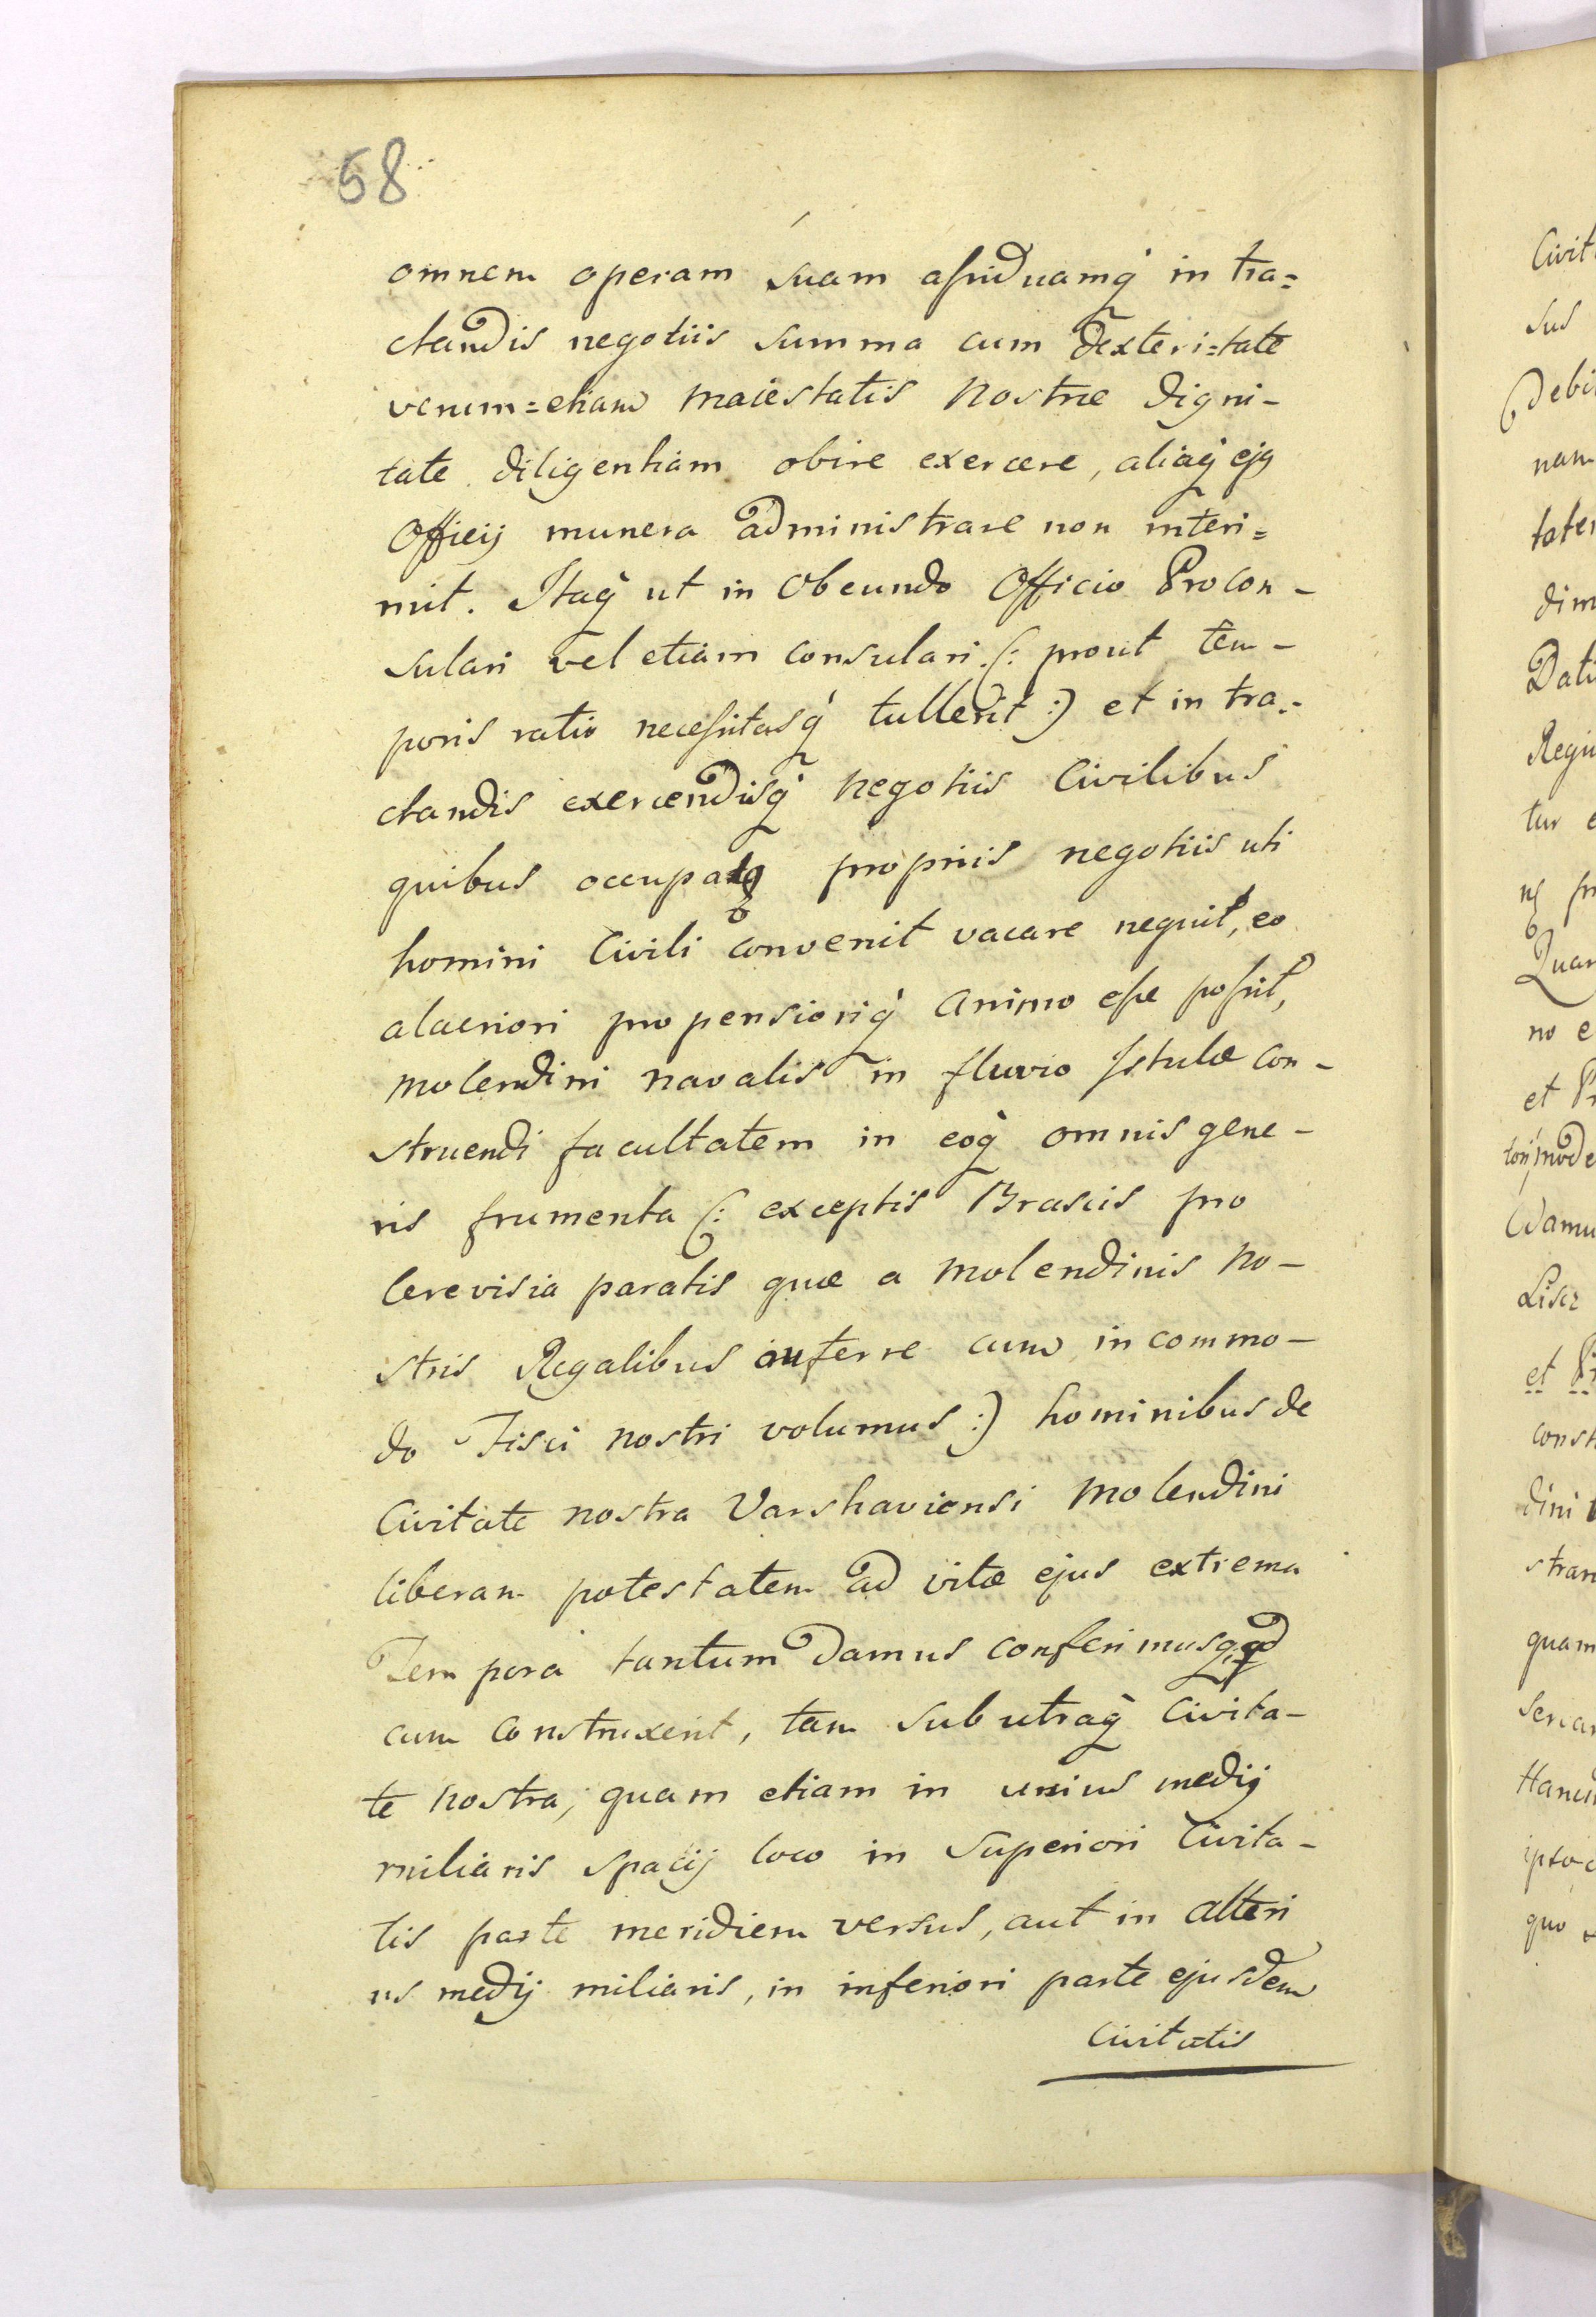 58
omnem operam suam assiduamq́ in tra=
ctandis negotiis summa cum dexteri=tate
verum=etiam maiestatis Nostræ digni-
tate diligentiam obire exercere, aliaq́ ejq
Officij munera administrare non interi=
mit. Itaq́ ut in Obeundo Officio Procon-
sulari vel etiam consulari (: prout tem-
poris ratio necessitasq́ tullerit :) et in tra-
ctandis exercendisq́ negotiis Civilibus
quibus occupatq propriis negotiis uti
homini Civili convenit vacare nequit, eo
alacriori propensioriq́ animo esse possit,
molendini navalis in fluvio Istulæ con-
struendi facultatem in eoq́ omnis gene-
ris frumenta (: exceptis Brasiis pro
Cerevisia paratis quæ a molendinis no-
stris Regalibus auferre cum incommo-
do Fisci nostri volumus :) hominibus de
Civitate nostra Varshaviensi molendini
liberam potestatem ad vitæ ejus extrema
Tempora tantum damus conferimusq́ qd
cum construxerit, tam sub utraq́ Civita-
te nostra, quam etiam in unius medij
miliaris spacij loco in Superiori Civita-
tis parte meridiem versus, aut in alteri
us medij miliaris, in inferiori parte ejusdem
Civitatis
Civit
sus
debi
nam
tatem
dim
Dat
Regi
tur
no e
et Pr
mode
damu
Lisc
et Pr
const
dini
stran
quam
quo